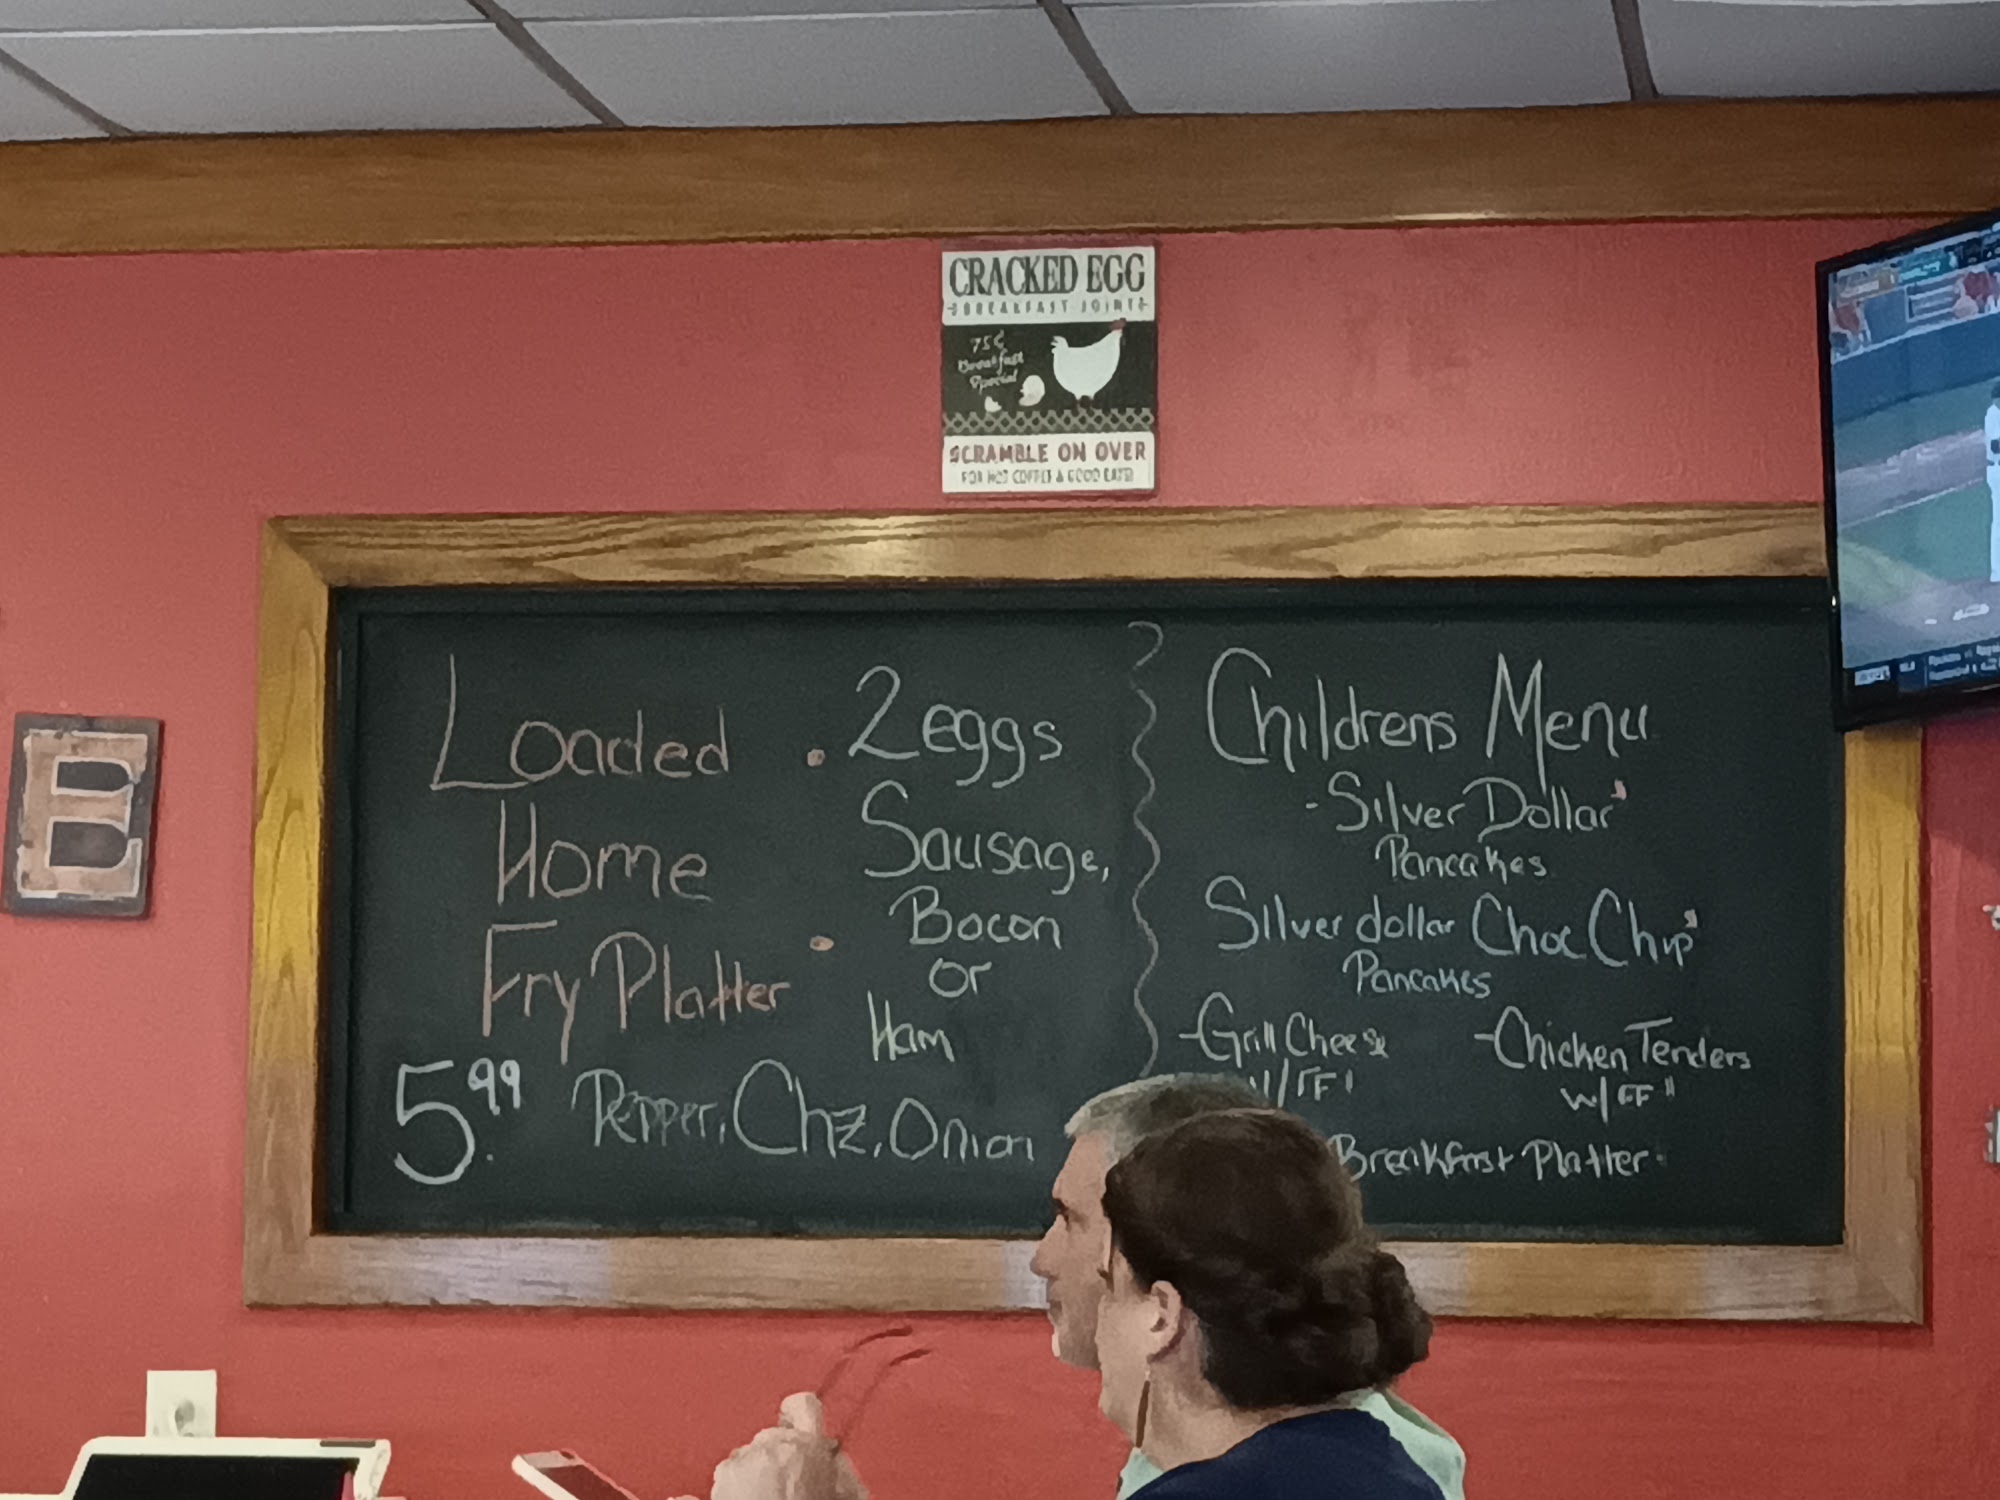 CRACKED EGG
BREAKFAST JOINT
75¢
Breakfast
Special
SCRAMBLE ON OVER
FOR HOT COFFEE & GOOD EATS!
B
Loaded
Home
Fry Platter
5.99
• 2 eggs
Sausage,
Bacon
or
Ham
Pepper, Chz, Onion
Childrens Menu
- Silver Dollar
Pancakes
Silver dollar Choc Chip
Pancakes
- Grill Cheese
W/FF
- Chicken Tenders
w/FF
Breakfast Platter